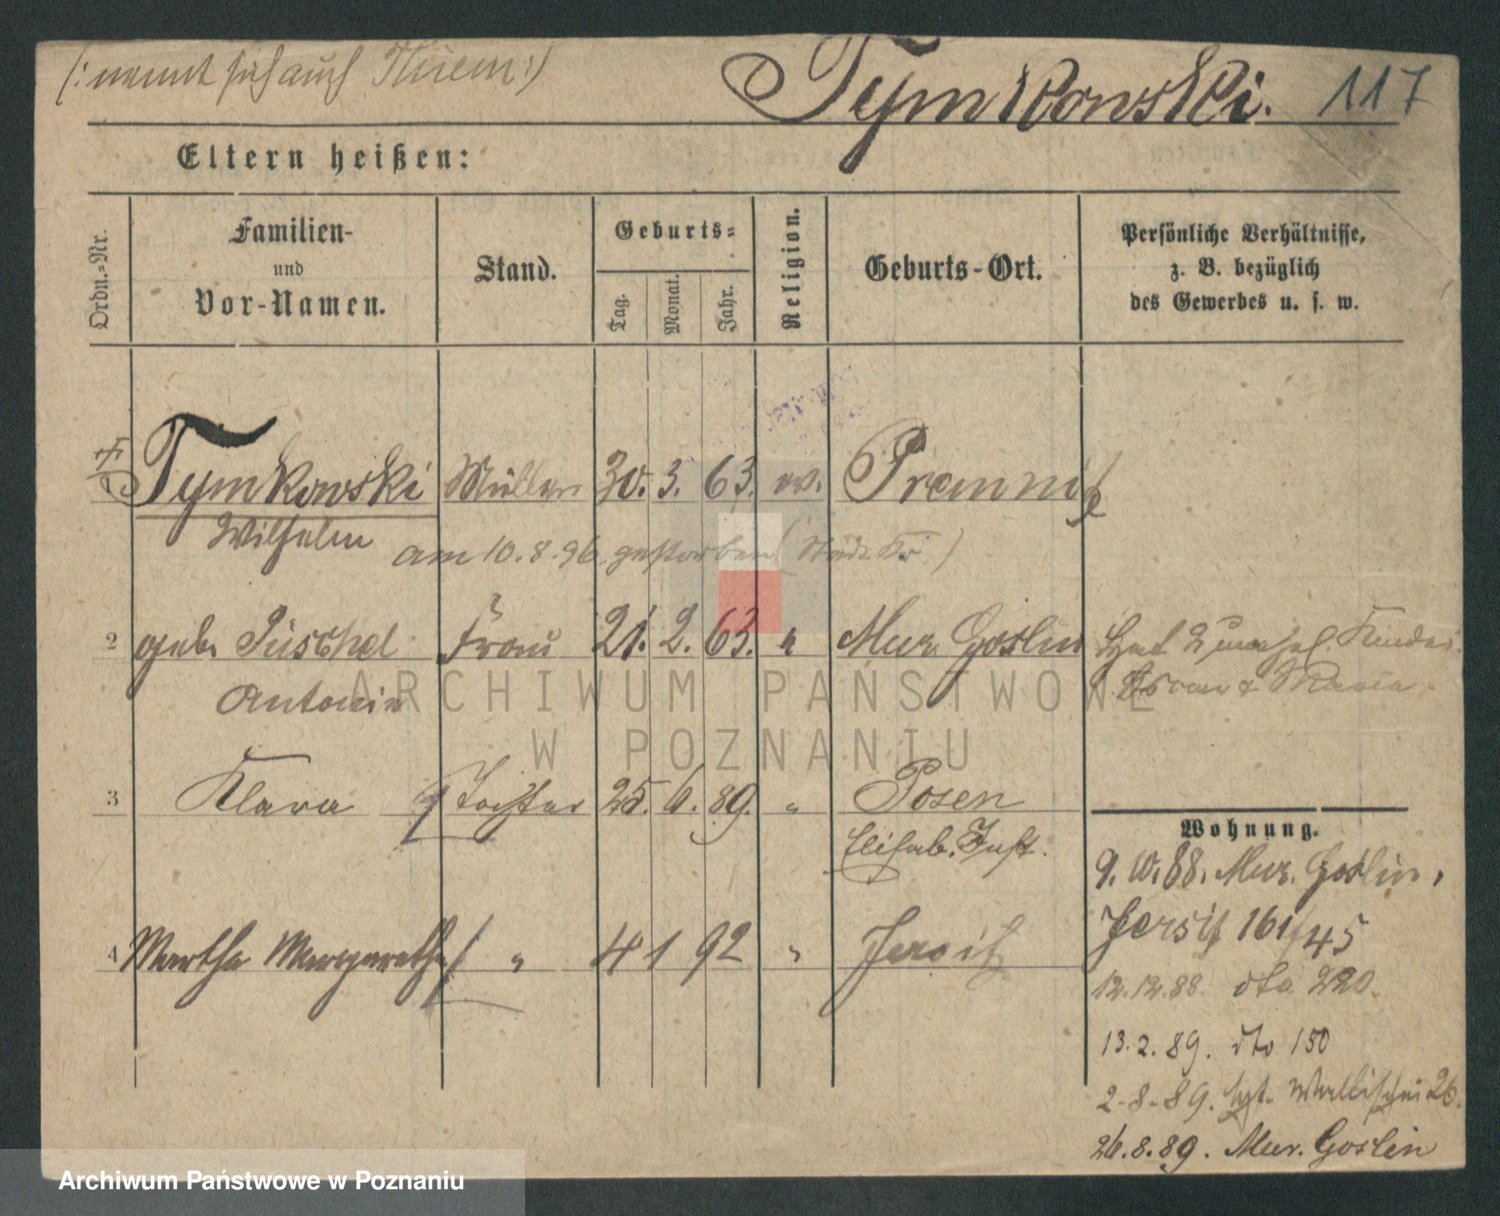 (: nennt sich auch Thiem :)
Tymkowski. 117
Eltern heißen:
Ordn.-Nr.
Familien-
und
Vor-Namen.
Stand.
Geburts-
Tag.
Monat.
Jahr.
Religion.
Geburts-Ort.
Persönliche Verhältnisse,
z. B. bezüglich
des Gewerbes u. s. w.
Tymkowski Müller 30. 3. 63. ev.
Wilhelm
am 10. 8. 96. gestorben
2 geb. Püschel Frau 21. 2. 63. " Mur. Goslin
Antonie
Hat 2 unehel. Kinder
& Maria
3 Klara Tochter 25. 6. 89. " Posen
Elisab. Just.
4 Martha Margarethe " 4 1 92 " Jersitz
Wohnung.
9. 10. 88. Mur. Goslin,
Jersitz 161/45
12. 12. 88. dto 220.
13. 2. 89. dto 150
2. 8. 89. Wallischei 26.
26. 8. 89. Mur. Goslin
ARCHIWUM PAŃSTWOWE
W POZNANIU
Archiwum Państwowe w Poznaniu